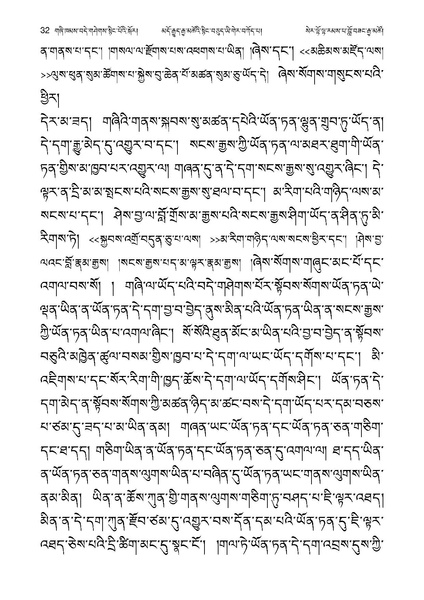 32 གཞི་ཁམས་བདེ་གཤེགས་སྙིང་པོའི་སྐོར། མདོ་རྒྱུད་རྒྱ་མཚོའི་སྙིང་བཅུད་ཡེ་གེར་བཀོད་པ། སེར་ལྷོ་ལྷ་རམས་པ་བློ་བཟང་རྒྱ་མཚོ།
ན་གནས་པ་དང་། །གསལ་ལ་རྫོགས་པས་འཕགས་པ་ཡིན། །ཞེས་དང་། <<མཆིམས་མཛོད་ལས།
>>ལུས་ཕུན་སུམ་ཚོགས་པ་སྐྱེས་བུ་ཆེན་པོ་མཚན་སུམ་ཅུ་ཡོད་དེ། ཞེས་སོགས་གསུངས་པའི་
ཕྱིར།
དེར་མ་ཟད། གཞིའི་གནས་སྐབས་སུ་མཚན་དཔེའི་ཡོན་ཏན་ལྷུན་གྲུབ་ཏུ་ཡོད་ན།
དེ་དག་རྒྱུ་མེད་དུ་འགྱུར་བ་དང་། སངས་རྒྱས་ཀྱི་ཡོན་ཏན་ལ་མཐར་ཐུག་གི་ཡོན་
ཏན་གྱིས་མ་ཁྱབ་པར་འགྱུར་ལ། གཞན་དུ་ན་དེ་དག་སངས་རྒྱས་སུ་འགྱུར་ཞིང་། དེ་
ལྟར་ན་དྲི་མ་མ་སྤངས་པའི་སངས་རྒྱས་སུ་ཐལ་བ་དང་། མ་རིག་པའི་གཉིད་ལས་མ་
སངས་པ་དང་། ཤེས་བྱ་ལ་བློ་གྲོས་མ་རྒྱས་པའི་སངས་རྒྱས་ཤིག་ཡོད་ན་ཤིན་ཏུ་མི་
རིགས་ཏེ། <<སྐྱབས་འགྲོ་བདུན་ཅུ་པ་ལས། >>མ་རིག་གཉིད་ལས་སངས་ཕྱིར་དང་། །ཤེས་བྱ་
ལའང་བློ་རྣམ་རྒྱས། །སངས་རྒྱས་པད་མ་ལྟར་རྣམ་རྒྱས། །ཞེས་སོགས་གཞུང་མང་པོ་དང་
འགལ་བས་སོ། ། གཞི་ལ་ཡོད་པའི་བདེ་གཤེགས་པོར་སྟོབས་སོགས་ཡོན་ཏན་ཡེ་
ལྡན་ཡིན་ན་ཡོན་ཏན་དེ་དག་བྱ་བ་བྱེད་ནུས་མིན་པའི་ཡོན་ཏན་ཡིན་ན་སངས་རྒྱས་
ཀྱི་ཡོན་ཏན་ཡིན་པ་འགལ་ཞིང་། སོ་སོའི་ཐུན་མོང་མ་ཡིན་པའི་བྱ་བ་བྱེད་ན་སྟོབས་
བཅུའི་མཁྱེན་ཚུལ་བསམ་གྱིས་ཁྱབ་པ་དེ་དག་ལ་ཡང་ཡོད་དགོས་པ་དང་། མི་
འཇིགས་པ་དང་སོ་སོར་རིག་གི་ཁྱད་ཆོས་དེ་དག་ལ་ཡོད་དགོས་ཤིང་། ཡོན་ཏན་དེ་
དག་མེད་ན་སྟོབས་སོགས་ཀྱི་མཚན་ཉིད་མ་ཚང་བས་དེ་དག་ལ་ཡོད་པར་དམ་བཅས་
པ་ཙམ་དུ་ཟད་པ་མ་ཡིན་ནམ། གཞན་ཡང་ཡོན་ཏན་དང་ཡོན་ཏན་ཅན་གཅིག་
དང་ཐ་དད། གཅིག་ཡིན་ན་ཡོན་ཏན་དང་ཡོན་ཏན་ཅན་དུ་འགལ་ལ། ཐ་དད་ཡིན་
ན་ཡོན་ཏན་ཅན་གནས་ལུགས་ཡིན་པ་བཞིན་དུ་ཡོན་ཏན་ཡང་གནས་ལུགས་ཡིན་
ནམ་མིན། ཡིན་ན་ཆོས་ཀུན་གྱི་གནས་ལུགས་གཅིག་ཏུ་བཤད་པ་ཇི་ལྟར་འཐད།
མིན་ན་དེ་དག་ཀུན་རྫོབ་ཙམ་དུ་འགྱུར་བས་དོན་དམ་པའི་ཡོན་ཏན་དུ་ཇི་ལྟར་
འཐད་ཅེས་པའི་དྲི་ཚིག་མང་དུ་སྣང་ངོ་། །གལ་ཏེ་ཡོན་ཏན་དེ་དག་འབྲས་དུས་ཀྱི་